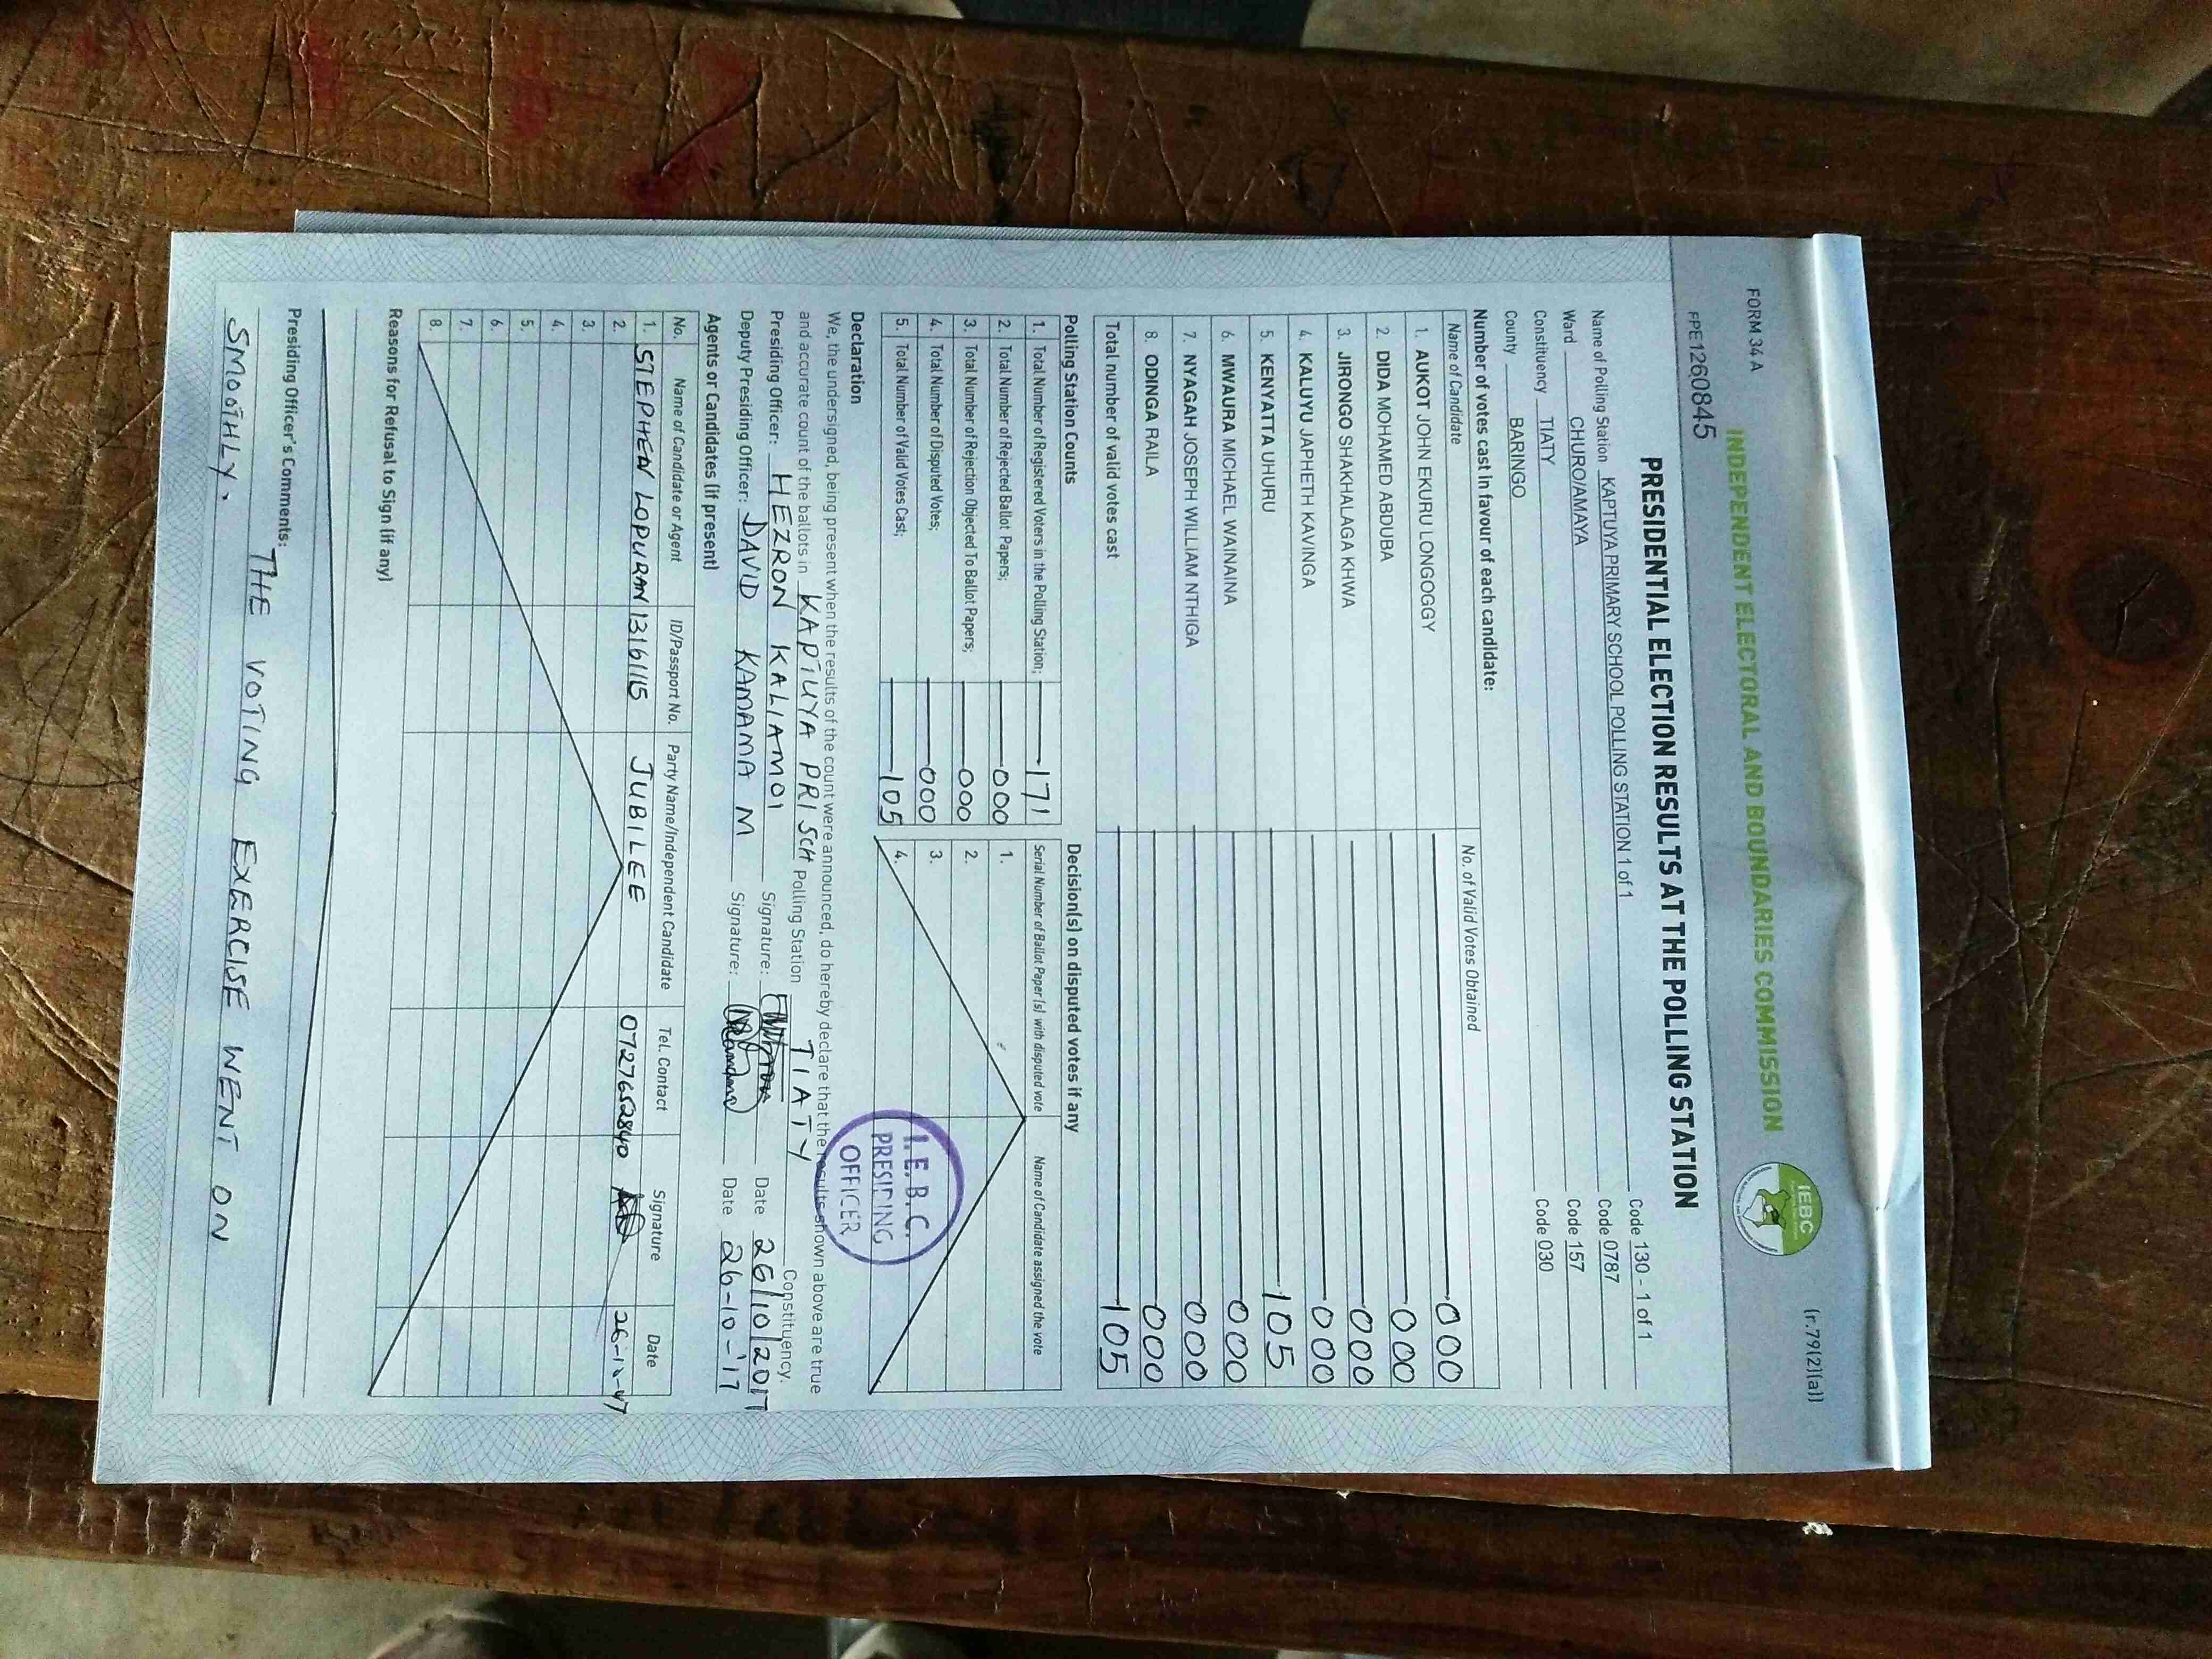 FORM 34 A
(r.79(2)(a))
INDEPENDENT ELECTORAL AND BOUNDARIES COMMISSION
IEBC
FPE1260845
PRESIDENTIAL ELECTION RESULTS AT THE POLLING STATION
Name of Polling Station KAPTUYA PRIMARY SCHOOL POLLING STATION 1 of 1 Code 130 - 1 of 1
Ward CHURO/AMAYA Code 0787
Constituency TIATY Code 157
County BARINGO Code 030
Number of votes cast in favour of each candidate:
Name of Candidate No. of Valid Votes Obtained
1. AUKOT JOHN EKURU LONGOGGY 000
2. DIDA MOHAMED ABDUBA 000
3. JIRONGO SHAKHALAGA KHWA 000
4. KALUYU JAPHETH KAVINGA 000
5. KENYATTA UHURU 105
6. MWAURA MICHAEL WAINAINA 000
7. NYAGAH JOSEPH WILLIAM NTHIGA 000
8. ODINGA RAILA 000
Total number of valid votes cast 105
Polling Station Counts Decision(s) on disputed votes if any
1. Total Number of Registered Voters in the Polling Station; 171 Serial Number of Ballot Paper (s) with disputed vote Name of Candidate assigned the vote
2. Total Number of Rejected Ballot Papers; 000 1.
3. Total Number of Rejection Objected To Ballot Papers; 000 2.
4. Total Number of Disputed Votes; 000 3.
5. Total Number of Valid Votes Cast; 105 4.
I.E.B.C.
PRESIDING
OFFICER
Declaration
We, the undersigned, being present when the results of the count were announced, do hereby declare that the results shown above are true
and accurate count of the ballots in KAPTUYA PRI SCH Polling Station TIATY Constituency.
Presiding Officer: HEZRON KALIAMOI Signature: Date 26/10/2017
Deputy Presiding Officer: DAVID KAMAMA M Signature: Date 26-10-'17
Agents or Candidates (if present)
No. Name of Candidate or Agent ID/Passport No. Party Name/Independent Candidate Tel. Contact Signature Date
1. STEPHEN LOPURAN 13161115 JUBILEE 0727652840 26-10-17
2.
3.
4.
5.
6.
7.
8.
Reasons for Refusal to Sign (if any)
Presiding Officer's Comments: THE VOTING EXERCISE WENT ON
SMOOTHLY.